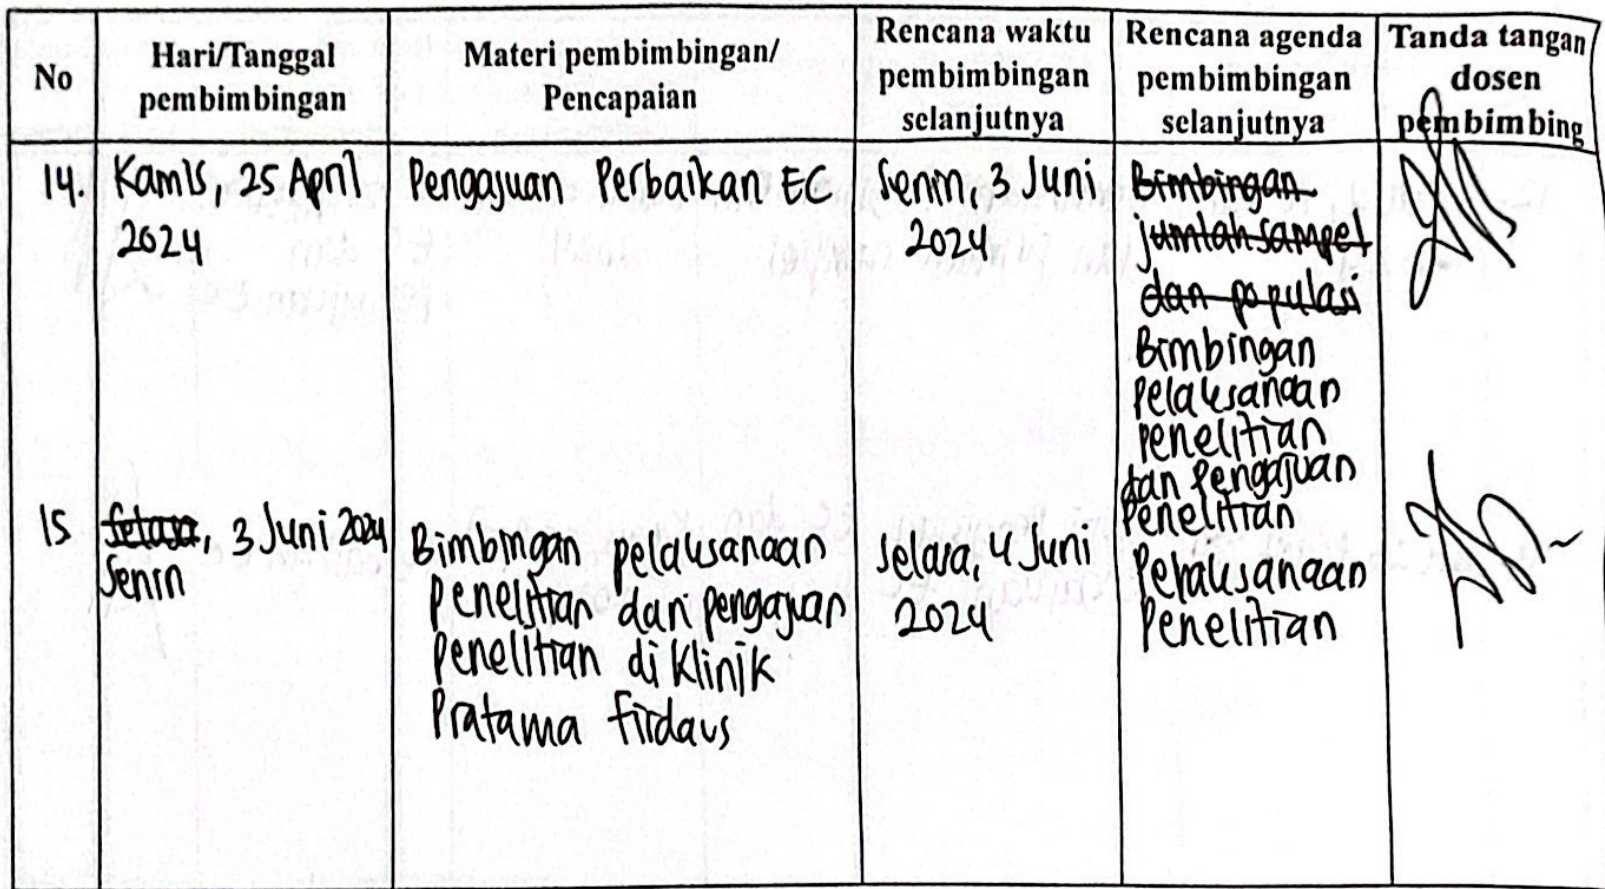 No
Hari/Tanggal
pembimbingan
Materi pembimbingan/
Pencapaian
Rencana waktu
pembimbingan
selanjutnya
Rencana agenda
pembimbingan
selanjutnya
Tanda tangan
dosen
pembimbing
14.
Kamis, 25 April
2024
Pengajuan Perbaikan EC
Senin, 3 Juni
2024
Bimbingan
jumlah sampel
dan populasi
Bimbingan
Pelaksanaan
penelitian
dan Pengajuan
Penelitian
15
Selasa, 3 Juni 2024
Senin
Bimbingan pelaksanaan
Penelitian dan pengajuan
Penelitian di Klinik
Pratama Firdaus
Selasa, 4 Juni
2024
Pelaksanaan
Penelitian